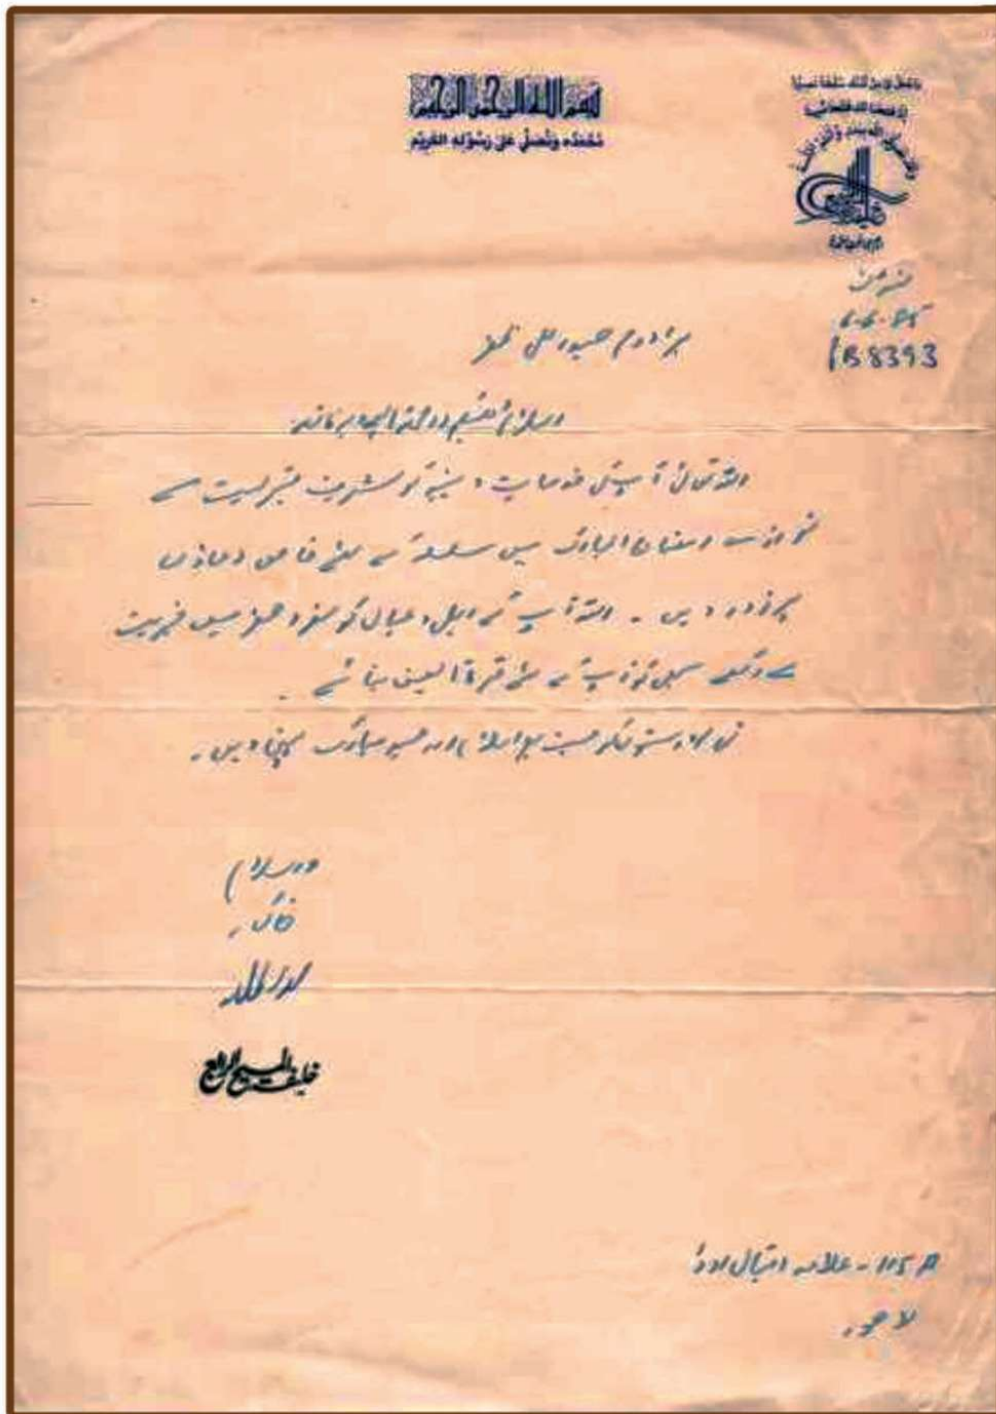 بسم اللہ الرحمن الرحیم
نحمدہ ونصلی علی رسولہ الکریم
لندن
6.6.85
B 8393
برادرم حمید اللہ ظفر
السلام علیکم ورحمۃ اللہ وبرکاتہ
اللہ تعالیٰ آپکی خدمات دینیہ کو شرف قبولیت سے
نوازے رمضان المبارک میں سلسلہ کے لئے خاص دعاؤں
پر زور دیں ۔ اللہ آپ کے اہل و عیال کو سفر و حضر میں خیریت
سے رکھے سبکو آپ کے لئے قرۃ العین بنائے ۔
سلام اور عید مبارک پہنچا دیں ۔
والسلام
خاکسار
خلیفۃ المسیح الرابع
115 - علامہ اقبال روڈ
لاہور